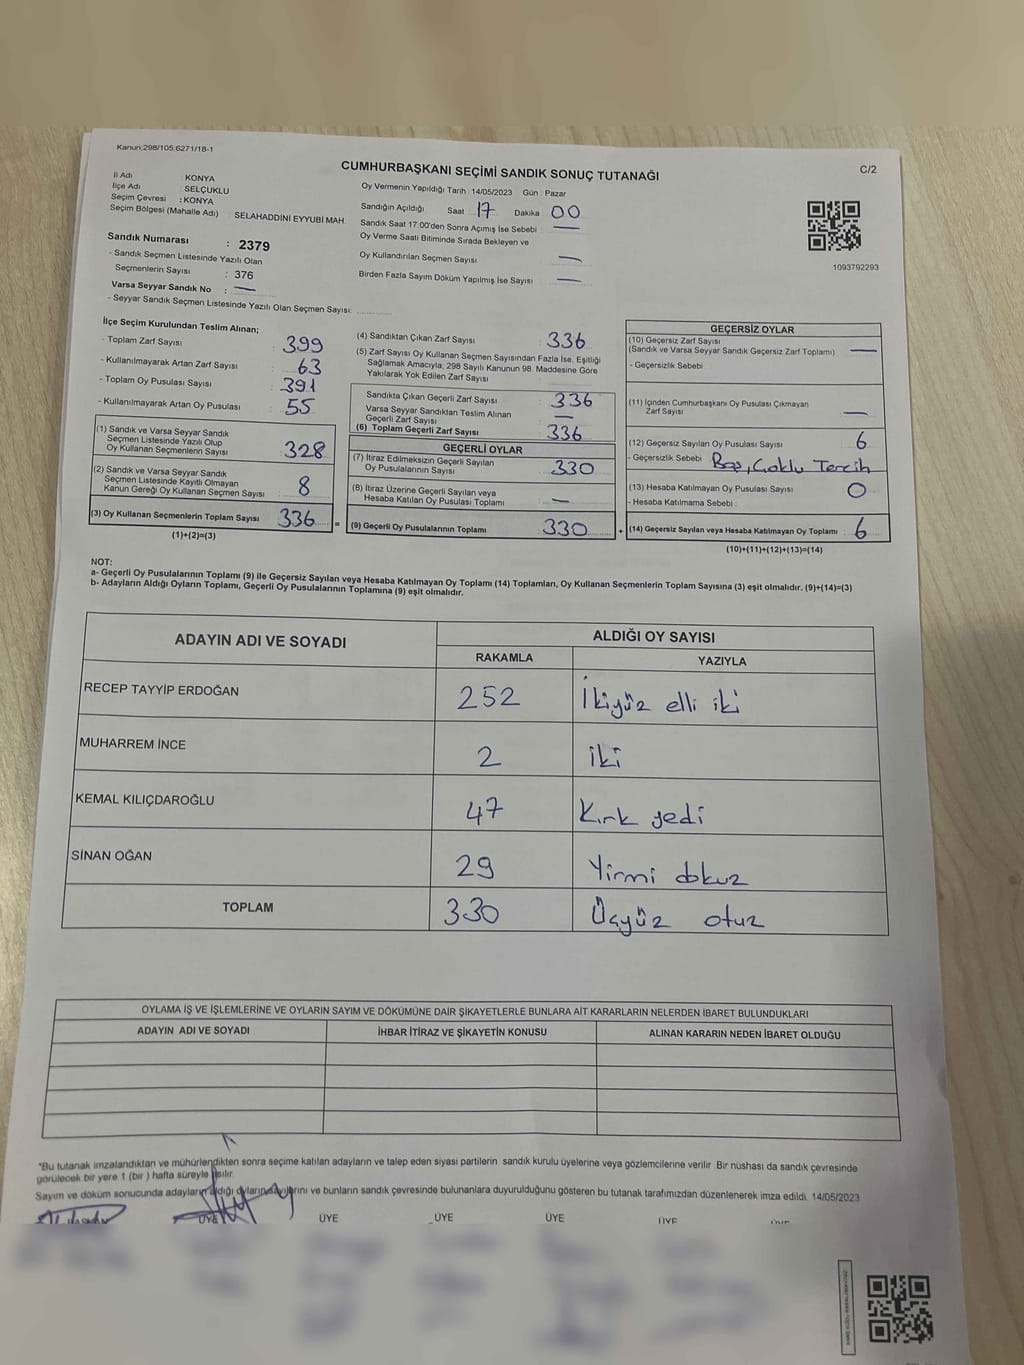 Kanun;298/105,6271/18-1
CUMHURBAŞKANI SEÇİMİ SANDIK SONUÇ TUTANAĞI
C/2
İl Adı KONYA
İlçe Adı SELÇUKLU
Seçim Çevresi : KONYA
Seçim Bölgesi (Mahalle Adı) : SELAHADDİNİ EYYUBİ MAH.
Oy Vermenin Yapıldığı Tarih : 14/05/2023 Gün : Pazar
Sandığın Açıldığı Saat 17 Dakika 00
Sandık Saat 17:00'den Sonra Açımış İse Sebebi —
Oy Verme Saati Bitiminde Sırada Bekleyen ve
Oy Kullandırılan Seçmen Sayısı —
Birden Fazla Sayım Döküm Yapılmış İse Sayısı —
1093792293
Sandık Numarası : 2379
- Sandık Seçmen Listesinde Yazılı Olan
Seçmenlerin Sayısı : 376
Varsa Seyyar Sandık No : —
- Seyyar Sandık Seçmen Listesinde Yazılı Olan Seçmen Sayısı:
İlçe Seçim Kurulundan Teslim Alınan;
- Toplam Zarf Sayısı : 399
- Kullanılmayarak Artan Zarf Sayısı : 63
- Toplam Oy Pusulası Sayısı : 391
- Kullanılmayarak Artan Oy Pusulası : 55
(1) Sandık ve Varsa Seyyar Sandık
Seçmen Listesinde Yazılı Olup
Oy Kullanan Seçmenlerin Sayısı 328
(2) Sandık ve Varsa Seyyar Sandık
Seçmen Listesinde Kayıtlı Olmayan
Kanun Gereği Oy Kullanan Seçmen Sayısı 8
(3) Oy Kullanan Seçmenlerin Toplam Sayısı 336 =
(1)+(2)=(3)
(4) Sandıktan Çıkan Zarf Sayısı 336
(5) Zarf Sayısı Oy Kullanan Seçmen Sayısından Fazla İse, Eşitliği
Sağlamak Amacıyla; 298 Sayılı Kanunun 98. Maddesine Göre
Yakılarak Yok Edilen Zarf Sayısı
Sandıkta Çıkan Geçerli Zarf Sayısı : 336
Varsa Seyyar Sandıktan Teslim Alınan
Geçerli Zarf Sayısı : —
(6) Toplam Geçerli Zarf Sayısı : 336
GEÇERLİ OYLAR
(7) İtiraz Edilmeksizin Geçerli Sayılan
Oy Pusulalarının Sayısı : 330
(8) İtiraz Üzerine Geçerli Sayılan veya
Hesaba Katılan Oy Pusulası Toplamı : —
(9) Geçerli Oy Pusulalarının Toplamı : 330 +
GEÇERSİZ OYLAR
(10) Geçersiz Zarf Sayısı
(Sandık ve Varsa Seyyar Sandık Geçersiz Zarf Toplamı) —
- Geçersizlik Sebebi
(11) İçinden Cumhurbaşkanı Oy Pusulası Çıkmayan
Zarf Sayısı —
(12) Geçersiz Sayılan Oy Pusulası Sayısı 6
- Geçersizlik Sebebi Boş, Çoklu Tercih
(13) Hesaba Katılmayan Oy Pusulası Sayısı 0
- Hesaba Katılmama Sebebi :
(14) Geçersiz Sayılan veya Hesaba Katılmayan Oy Toplamı : 6
(10)+(11)+(12)+(13)=(14)
NOT:
a- Geçerli Oy Pusulalarının Toplamı (9) ile Geçersiz Sayılan veya Hesaba Katılmayan Oy Toplamı (14) Toplamları, Oy Kullanan Seçmenlerin Toplam Sayısına (3) eşit olmalıdır. (9)+(14)=(3)
b- Adayların Aldığı Oyların Toplamı, Geçerli Oy Pusulalarının Toplamına (9) eşit olmalıdır.
ADAYIN ADI VE SOYADI ALDIĞI OY SAYISI
RAKAMLA YAZIYLA
RECEP TAYYİP ERDOĞAN 252 İkiyüz elli iki
MUHARREM İNCE 2 iki
KEMAL KILIÇDAROĞLU 47 Kırk yedi
SİNAN OĞAN 29 Yirmi dokuz
TOPLAM 330 Üçyüz otuz
OYLAMA İŞ VE İŞLEMLERİNE VE OYLARIN SAYIM VE DÖKÜMÜNE DAİR ŞİKAYETLERLE BUNLARA AİT KARARLARIN NELERDEN İBARET BULUNDUKLARI
ADAYIN ADI VE SOYADI İHBAR İTİRAZ VE ŞİKAYETİN KONUSU ALINAN KARARIN NEDEN İBARET OLDUĞU
*Bu tutanak imzalandıktan ve mühürlendikten sonra seçime katılan adayların ve talep eden siyasi partilerin sandık kurulu üyelerine veya gözlemcilerine verilir .Bir nüshası da sandık çevresinde
görülecek bir yere 1 (bir ) hafta süreyle asılır.
Sayım ve döküm sonucunda adayların aldığı oyların sayılarını ve bunların sandık çevresinde bulunanlara duyurulduğunu gösteren bu tutanak tarafımızdan düzenlenerek imza edildi. 14/05/2023
ÜYE ÜYE ÜYE ÜYE ÜYE